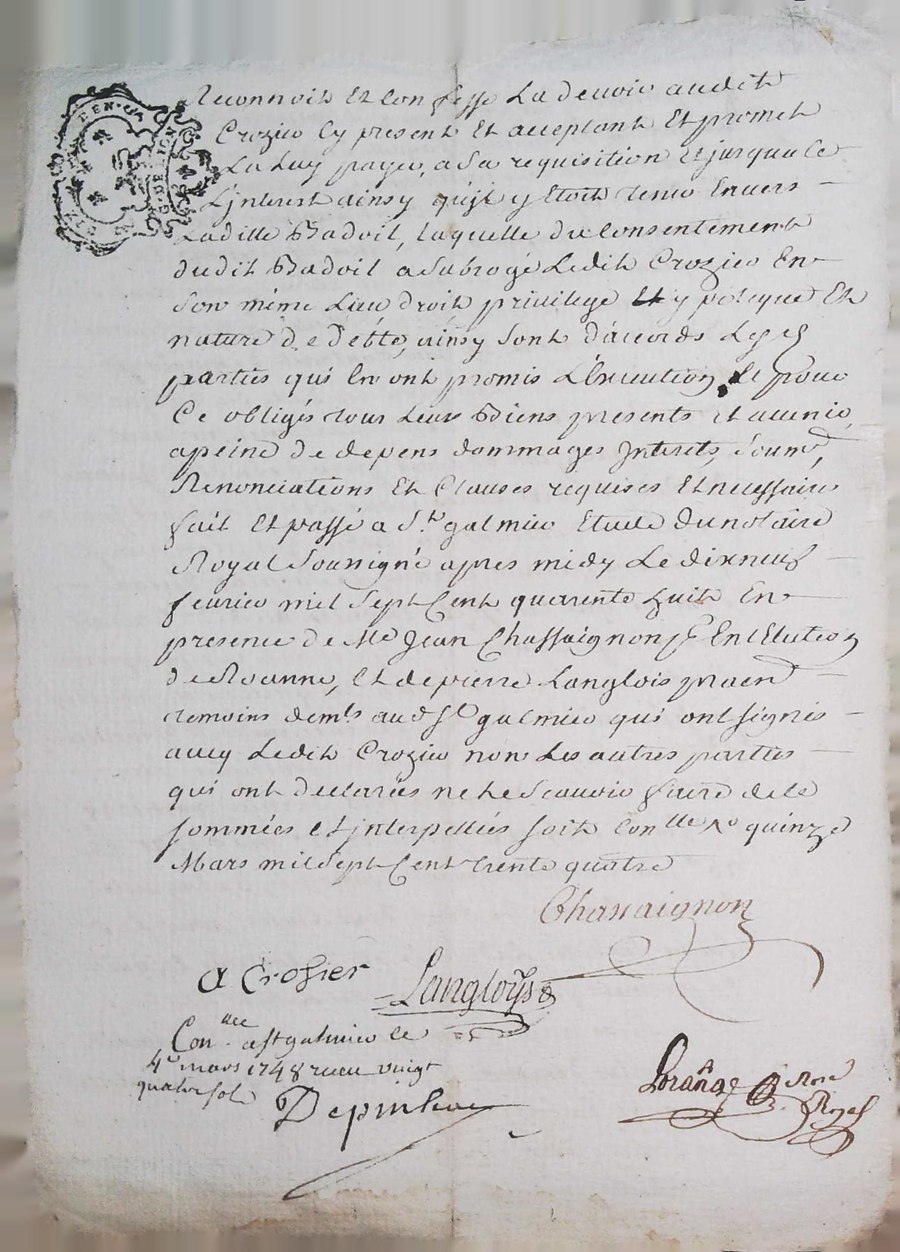 GEN. DE LION
reconnoit et confesse la devoir audit
Crozier cy present et acceptant et promet
la luy payer, a sa requisition et jusqua ce
L'jnterest ainsy qu'jl y etoit tenu envers
Laditte Badoil, laquelle du consentement
dudit Badoil a subrogé ledit Crozier en
son même lieu droit, privilege et ypoteque et
nature de debte, ainsy sont d'acords les
parties qui en ont promis l'execution, et pour
ce obligés tous leurs Biens presents et avenir,
apeine de depens dommages jnterets, soumd,
Renonciations et clauses requises et necessaire
fait et passé a St. galmier etude du notaire
Royal soussigné apres midy le dixneuf
fevrier mil sept cent quarente huit en
presence de Me Jean Chassaignon en l'Election
de Roanne, et de pierre Langlois
temoins demts aud St. galmier qui ont signés
avec ledit Crozier non les autres parties
qui ont declarées ne le scavoir faire de ce
sommées et jnterpellées soit conlle quinze
Mars mil sept cent trente quatre
Chassaignon
a Crosier
Langloys
Conllee a st galmier le
4e mars 1748 receu vingt
quatre sols
Depinhac
Lorange Nore
Royal